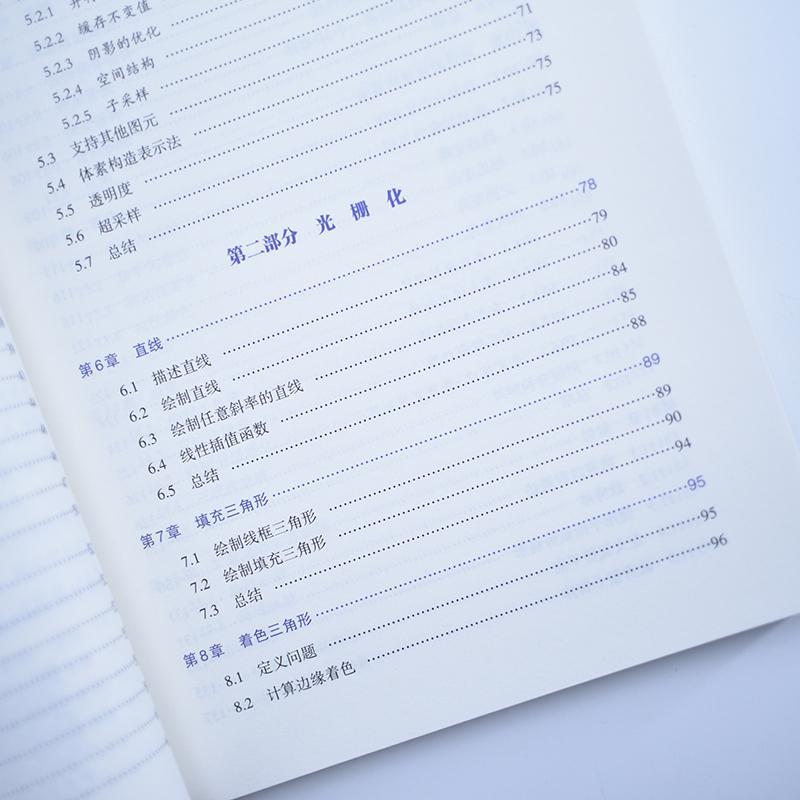 5.2.1
5.2.2 缓存不变值
5.2.3 阴影的优化
5.2.4 空间结构
5.2.5 子采样
5.3 支持其他图元
5.4 体素构造表示法 71
5.5 透明度 73
5.6 超采样 75
5.7 总结 75
第二部分 光栅化
第6章 直线 78
6.1 描述直线 79
6.2 绘制直线 80
6.3 绘制任意斜率的直线 84
6.4 线性插值函数 85
6.5 总结 88
第7章 填充三角形 89
7.1 绘制线框三角形 89
7.2 绘制填充三角形 90
7.3 总结 94
第8章 着色三角形 95
8.1 定义问题 95
8.2 计算边缘着色 96